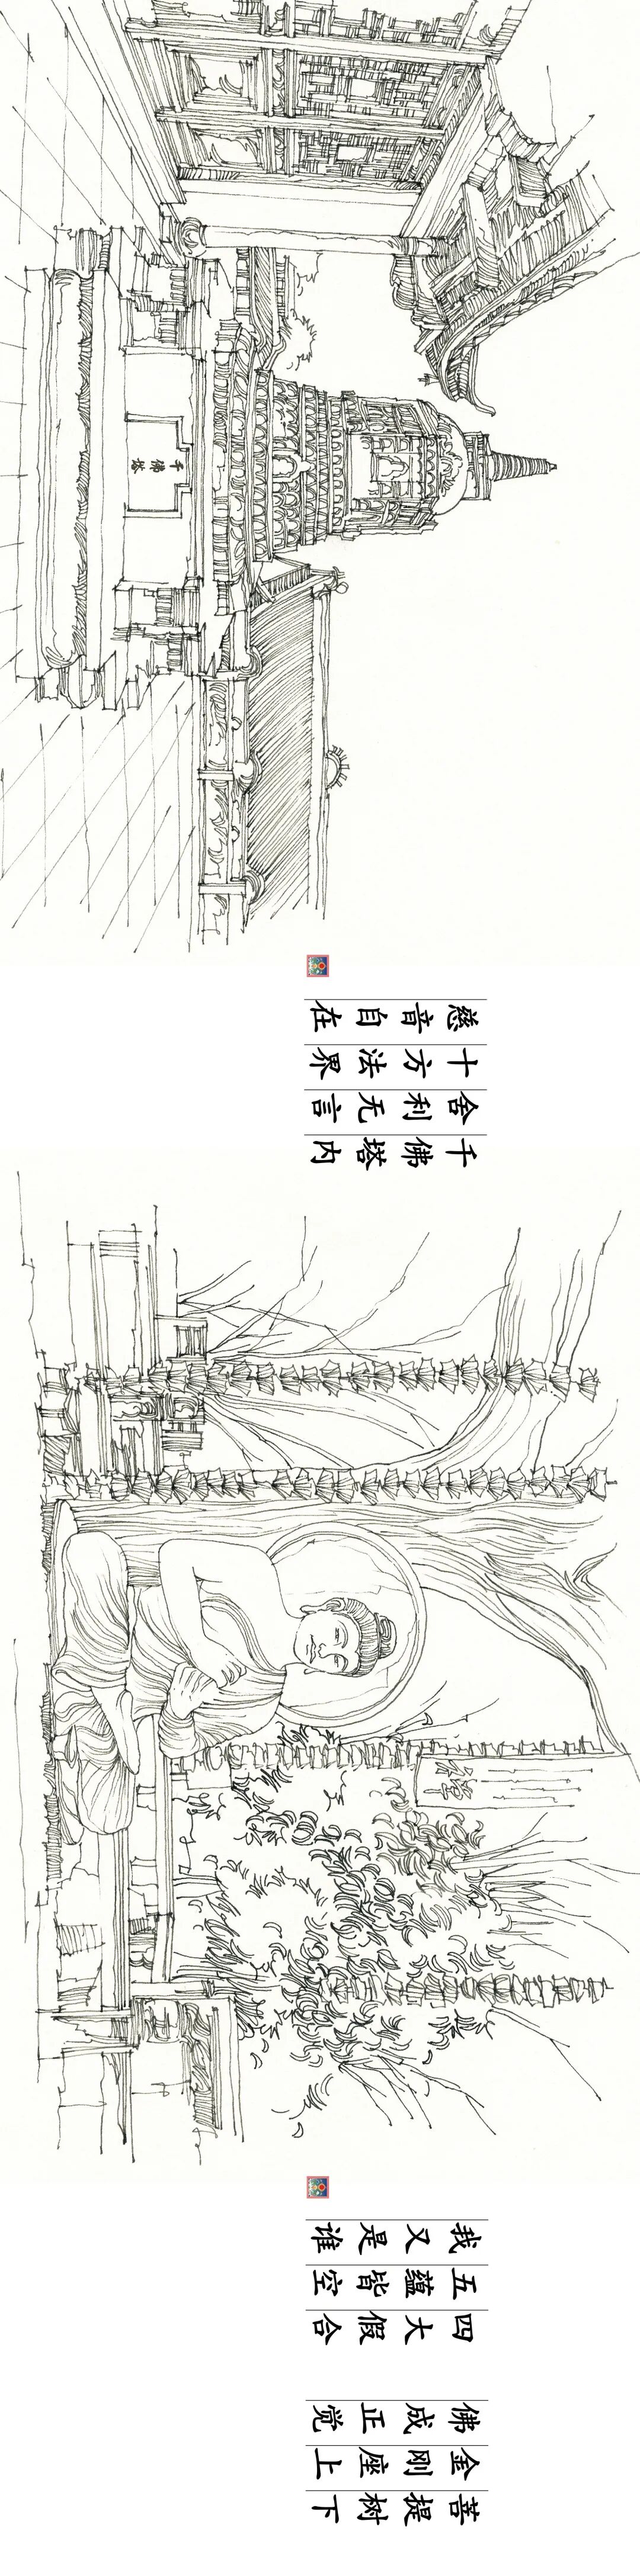 菩提树下
金刚座上
佛成正觉
四大假合
五蕴皆空
我又是谁
千佛塔内
舍利无言
十方法界
慈音自在
千佛塔